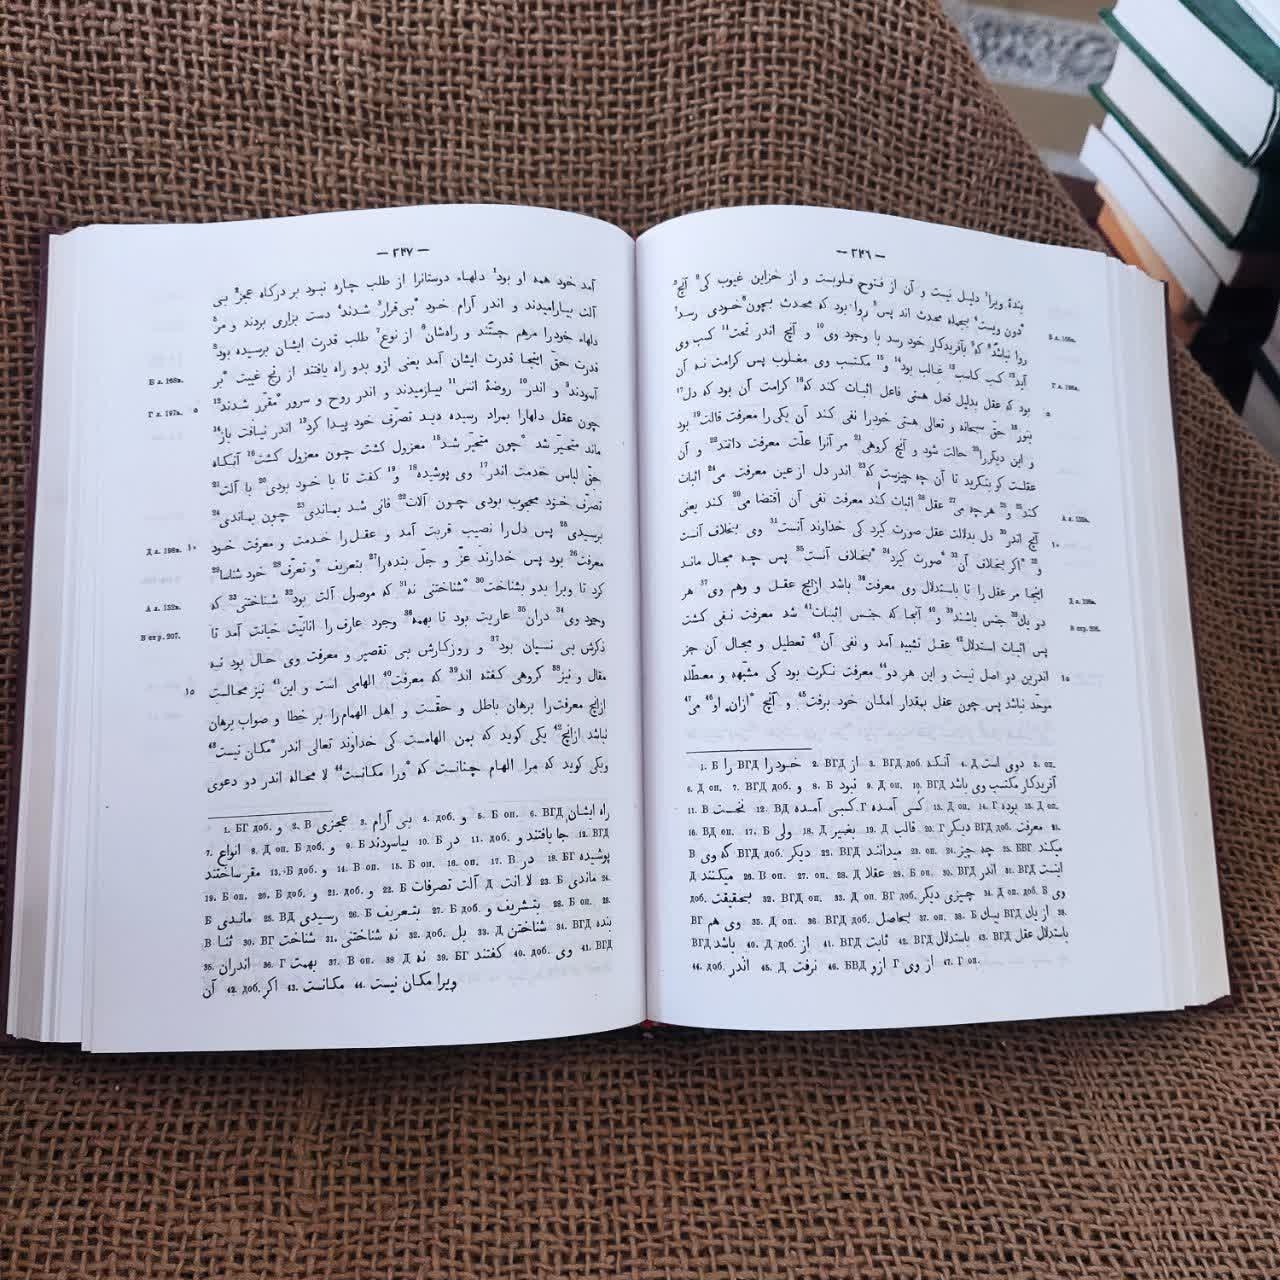 — ۳۴۶ —
بندهٔ ویرا¹ دلیل نیست و آن از فتوح قلوبست و از خزاین غیوب کی² آنچ³
دون ویست⁴ بجمله محدث اند پس⁵ روا بود که محدث بچون خودی رسد
روا نباشد که بآفریدکار خود رسد با وجود وی¹⁰ و آنچ اندر تحت¹¹ کسب وی
آید¹² کسب کاسب¹³ غالب بود¹⁴ و¹⁵ مکتسب وی مغلوب پس کرامت نه آن
بود که عقل بدلیل فعل هستی فاعل اثبات کند که¹⁶ کرامت آن بود که دل¹⁷
بنور¹⁸ حقّ سبحانه و تعالی هستی خودرا نفی کند آن یکی را معرفت قالت¹⁹ بود
و این دیکررا²⁰ حالت شود و آنچ کروهی²¹ مر آنرا علّت معرفت دانند²² و آن
عقلست کو بنکرید تا آن چه چیزست که²³ اندر دل از عین معرفت می²⁴ اثبات
کند²⁵ و²⁶ هرچه می²⁷ عقل²⁸ اثبات کند معرفت نفی آن اقتضا می²⁹ کند یعنی
آنچ اندر³⁰ دل بدلالت عقل صورت کیرد کی خداوند آنست³¹ وی بخلاف آنست
و³² اکر بخلاف آن³³ صورت کیرد³⁴ بخلاف آنست³⁵ پس چه مجال ماند
اینجا مر عقل را تا باستدلال وی معرفت³⁶ باشد ازانچ عقل و وهم وی³⁷ هر
دو یك³⁸ جنس باشند³⁹ و⁴⁰ آنجا که جنس اثبات⁴¹ شد معرفت نفی کشت
پس اثبات استدلال⁴² عقل تشبیه آمد و نفی آن⁴³ تعطیل و مجال آن جز
اندرین دو اصل نیست و این هر دو⁴⁴ معرفت نکرت بود کی مشبّهه و معطّله
موحّد نباشد پس چون عقل بمقدار امکان خود برفت⁴⁵ و آنچ ازان او⁴⁶ می⁴⁷
1. Б را ВГД خودرا 2. ВГД از 3. ВГД доб. آنك 4. Д دوی است 5. оп.
6. Д оп. 7. ВГД доб. و 8. Б نبود 9. Д оп. 10. ВГД آفریدکار مکتسب وی باشد
11. В نخست 12. ВД کسبی آمده Г کسی آمده 13. Д оп. 14. Г بوده 15. Д оп.
16. ВД оп. 17. Б ولی 18. Д بغییر 19. Д قالب 20. Г دیکر ВГД доб. معرفت 21.
В که وی ВГД доб. دیکر 22. ВГД میدانند 23. оп. 24. Д چه چیز 25. БВГ میکند
Д میکنند 26. В оп. 27. оп. 28. Д عقلا 29. Б оп. 30. ВГД اندر 31. ВГД اینست
доб. بحقیقت 32. ВГД оп. 33. Д оп. ВГ доб. چیزی دیکر 34. Д оп. доб. Б وی
ВГ وی هم 35. Д оп. 36. ВГД доб. بحاصل 37. оп. 38. Б بیك ВГД از یك 39.
ВГД باشد 40. Д доб. از 41. ВГД ثابت 42. ВГД باستدلال 43. ВГД باستدلال عقل
44. доб. اندر 45. Д نرفت 46. БВД ازو Г از وی 47. Г оп.
В л. 166а.
Г л. 196а.
۵
А л. 133а.
۱۰
Д л. 198а.
Б стр. 206.
۱۵
— ۳۴۷ —
آمد خود همه او بود¹ دلهاء دوستانرا از طلب چاره نبود بر درکاه عجز² بی
آلت بیارامیدند و اندر آرام خود بی‌قرار³ شدند⁴ دست بزاری بردند و مر⁵
دلهاء خودرا مرهم جستند و راهشان⁶ از نوع⁷ طلب قدرت ایشان برسیده بود⁸
قدرت حقّ اینجا قدرت ایشان آمد یعنی ازو بدو راه یافتند از رنج غیبت بر
آسودند⁹ و اندر¹⁰ روضهٔ انس¹¹ بیارمیدند و اندر روح و سرور مقرّر شدند¹²
چون عقل دلهارا بمراد رسیده دید تصرّف خود پیدا کرد¹³ اندر نیافت باز¹⁴
ماند متحیّر شد چون متحیّر شد¹⁵ معزول کشت چون معزول کشت¹⁶ آنکاه
حقّ لباس خدمت اندر¹⁷ وی پوشیده¹⁸ و¹⁹ کفت تا با خود بودی²⁰ با آلت²¹
تصرّف خود محجوب بودی چون آلات²² فانی شد بماندی²³ چون بماندی²⁴
برسیدی²⁵ پس دل را نصیب قربت آمد و عقل را خدمت و معرفت خود
معرفت²⁶ بود پس خداوند عزّ و جلّ بنده را²⁷ بتعریف و تعرف²⁸ خود شناسا²⁹
کرد تا ویرا بدو بشناخت³⁰ شناختنی نه³¹ که موصول آلت بود³² شناختنی³³ که
وجود وی³⁴ دران³⁵ عاریت بود تا بهمه³⁶ وجود عارف را انانیّت خیانت آمد تا
ذکرش بی نسیان بود³⁷ و روزکارش بی تقصیر و معرفت وی حال بود نه
مقال و نیز³⁸ کروهی کفته اند³⁹ که معرفت⁴⁰ الهامی است و این⁴¹ نیز محالست
ازانچ معرفت را برهان باطل و حقّست و اهل الهام را بر خطا و صواب برهان
نباشد ازانچ⁴² یکی کوید که بمن الهامست کی خداوند تعالی اندر مکان نیست⁴³
ویکی کوید که مرا الهام چنانست که ورا مکانست⁴⁴ لا محاله اندر دو دعوی
1. БГ доб. و 2. В عجزی 3. بی آرام 4. доб. و 5. Б оп. 6. ВГД راه ایشان
7. انواع 8. Д оп. Б доб. و 9. Б بیاسودند 10. Б در 11. доб. جا یافتند و 12. ВГД
مقر ساختند 13. Б доб. و 14. В оп. 15. Б оп. 16. оп. 17. В در 18. БГ پوشیده
19. Б оп. 20. Б доб. و 21. доб. و 22. Б آلت تصرفات Д لا انت 23. Б ماندی 24.
Б ماندی 25. ВД رسیدی 26. Б بتعریف 27. Б доб. بتشریف و 28. Б оп. 29.
В ثنا 30. ВГ شناخت 31. نه شناختنی 32. доб. بل 33. Д شناختن 34. ВГД بنده
35. اندران 36. Г بهمت 37. В оп. 38. Д نه 39. БГ کفتند 40. доб. وی 41. ВГД
آن 42. доб. اکر 43. مکانست 44. ویرا مکان نیست
В л. 168а.
Г л. 197а.
۵
Д л. 198а.
۱۰
А л. 132а.
Б стр. 207.
۱۵